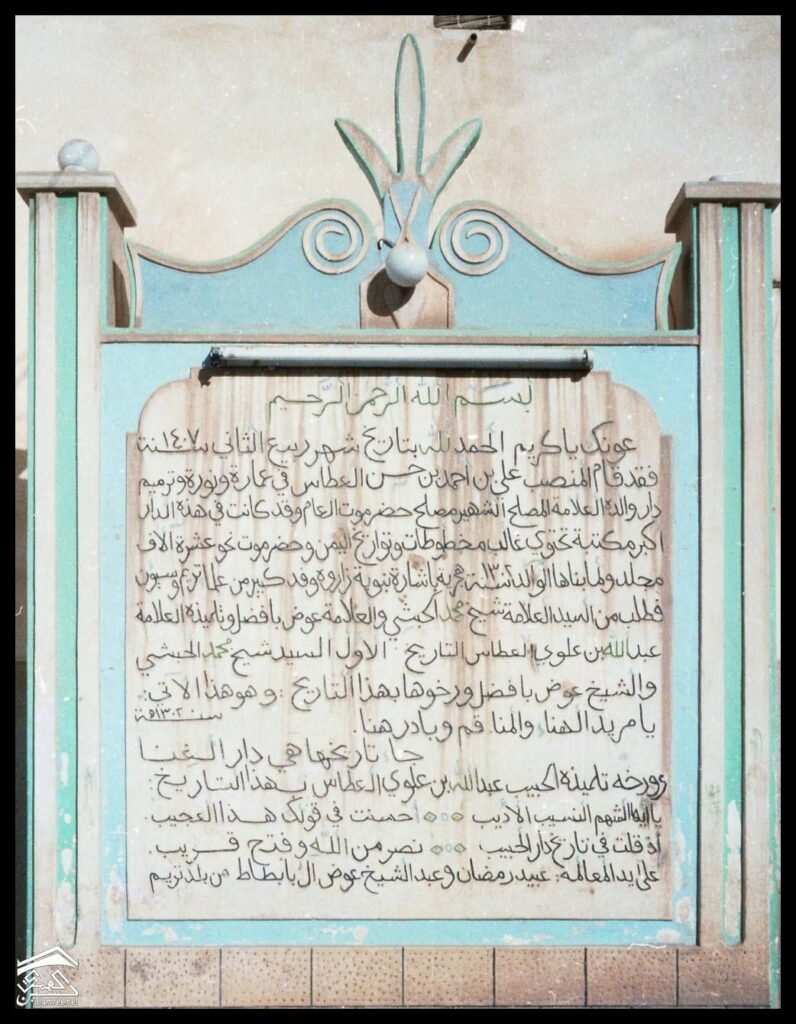 بسم الله الرحمن الرحيم
عونك ياكريم الحمد لله بتاريخ شهر ربيع الثاني سنة ١٤٠٧
فقد قام المنصب علي بن احمد بن حسن العطاس في عمارة ونورة وترميم
دار والده العلامة المصلح الشهير مصلح حضرموت العام وقد كانت في هذه الدار
اكبر مكتبة تحتوي غالب مخطوطات وتواريخ اليمن وحضرموت نحو عشرة الاف
مجلد ولما بناها الوالد سنة ١٣ هجرية باشارة نبوية زاروه وفد كبير من علما تريم وسيون
فطلب من السيد العلامة شيخ محمد الحبشي والعلامة عوض بافضل وتلميذه العلامة
عبدالله بن علوي العطاس التاريخ الاول السيد شيخ محمد الحبشي
والشيخ عوض بافضل ورخوها بهذا التاريخ : وهو هذا الاتي
يا مريد الهناء والمنا قم وبادر هنا . سنة ١٣٠٢ه
جا تاريخها هي دار الغنا
وورخه تلميذه الحبيب عبدالله بن علوي العطاس بهذ التاريخ :
يا ايها الشهم النسيب الاديب احسنت في قولك هذا العجيب
اذ قلت في تاريخ دار الحبيب نصر من الله وفتح قريب .
على يد المعالمة : عبيد رمضان وعبد الشيخ عوض ال بابطاط من بلد تريم